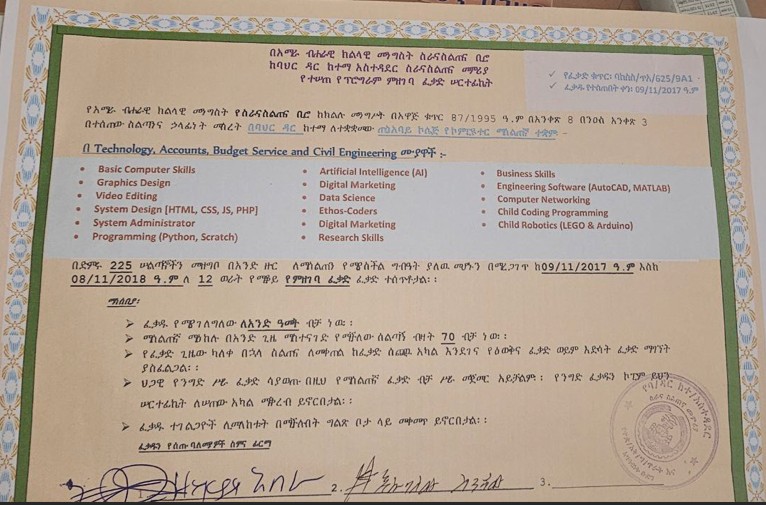 በአማራ ብሔራዊ ክልላዊ መንግስት ስራናስልጠና ቢሮ
ከባህር ዳር ከተማ አስተዳደር ስራናስልጠና መምሪያ
የተሠጠ የፕሮግራም ምዝገባ ፈቃድ ሠርተፊኬት
የፈቃድ ቁጥር፡ 625/9A1
ፈቃዱ የተሰጠበት ቀን፡ 09/11/2017 ዓ.ም
የአማራ ብሔራዊ ክልላዊ መንግስት የስራናስልጠና ቢሮ ከክልሉ መንግሥት በአዋጅ ቁጥር 87/1995 ዓ.ም በአንቀጽ 8 በንዑስ አንቀጽ 3
በተሰጠው ስልጣንና ኃላፊነት መሰረት በባህር ዳር ከተማ ለተቋቋመው ኮሌጅ የኮምፒውተር ማሰልጠኛ ተቋም :-
በ Technology, Accounts, Budget Service and Civil Engineering ሙያዎች :-
• Basic Computer Skills
• Graphics Design
• Video Editing
• System Design [HTML, CSS, JS, PHP]
• System Administrator
• Programming (Python, Scratch)
• Artificial Intelligence (AI)
• Digital Marketing
• Data Science
• Ethos-Coders
• Digital Marketing
• Research Skills
• Business Skills
• Engineering Software (AutoCAD, MATLAB)
• Computer Networking
• Child Coding Programming
• Child Robotics (LEGO & Arduino)
በድምሩ 225 ሠልጣኞችን መዝግቦ በአንድ ዙር ለማሰልጠን የሚያስችል ግብዓት ያለዉ መሆኑን በማረጋገጥ ከ09/11/2017 ዓ.ም እስከ
08/11/2018 ዓ.ም ለ 12 ወራት የሚቆይ የምዝገባ ፈቃድ ፈቃድ ተሰጥቶታል፡፡
ማሰቢያ፡
➢ ፈቃዱ የሚያገለግለው ለአንድ ዓመት ብቻ ነዉ፡
➢ ማሰልጠኛ ማዕከሉ በአንድ ጊዜ ማስተናገድ የሚችለው ሰልጣኝ ብዛት 70 ብቻ ነው፡
➢ የፈቃድ ጊዜው ካለቀ በኋላ ስልጠና ለመቀጠል ከፈቃድ ሰጪው አካል እንደገና የዕውቅና ፈቃድ ወይም እድሳት ፈቃድ ማግኘት
ያስፈልጋል፡፡
➢ ህጋዊ የንግድ ሥራ ፈቃድ ሳያወጡ በዚህ የማሰልጠኛ ፈቃድ ብቻ ሥራ መጀመር አይቻልም፡ የንግድ ፈቃዱን ኮፒም ይህን
ሠርተፊኬት ለሠጠው አካል ማቅረብ ይኖርበታል፡፡
➢ ፈቃዱ ተገልጋዮች ሊመለከቱት በሚችሉበት ግልጽ ቦታ ላይ መቀመጥ ይኖርበታል፡፡
ፈቃዱን የሰጡ ባለሙያዎች ስምና ፊርማ
2.
3.